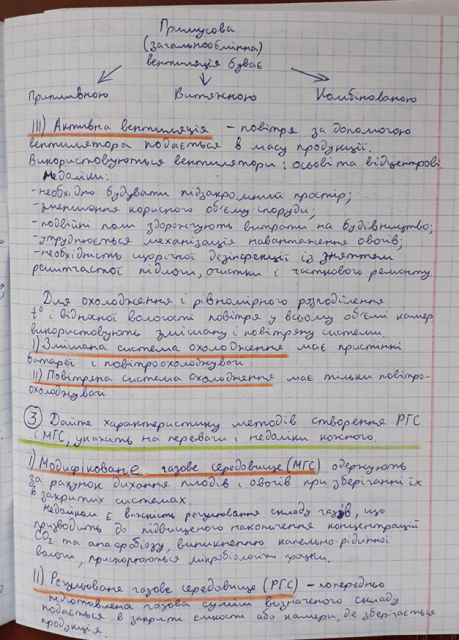 Примусова
(загальнообмінна)
вентиляція буває
Припливною Витяжною Комбінованою
III) Активна вентиляція – повітря за допомогою
вентилятора подається в масу продукції.
Використовуються вентилятори: осьові та відцентрові
Недоліки:
-необхідно будувати підзакромний простір;
-зменшення корисного об'єму споруди;
-подвійні поли здорожують витрати на будівництво;
-утруднюється механізація навантаження овочів;
-необхідність щорічної дезінфекції із зняттям
решітчастої підлоги, очистки і часткового ремонту.
Для охолодження і рівномірного розподілення
t° і відносної вологості повітря у всьому об'ємі камер
використовують змішану і повітряну системи.
I) Змішана система охолодження має пристінні
батареї і повітроохолоджувачі
II) Повітряна система охолодження має тільки повітро-
охолоджувачі
3) Дайте характеристику методів створення РГС
і МГС, укажіть на переваги і недоліки кожного.
I) Модифіковане газове середовище (МГС) одержують
за рахунок дихання плодів і овочів при зберіганні їх
в закритих системах.
Недоліком є важкість регулювання складу газів, що
призводить до підвищеного накопичення концентрацій
CO2 та анаеробіозу, виникненню капельно-рідинної
вологи, прискорюються мікробіологічні
II) Регульоване газове середовище (РГС) – попередньо
підготовлена газова суміш визначеного складу
подається в закриті ємкості або камери, де зберігається
продукція.